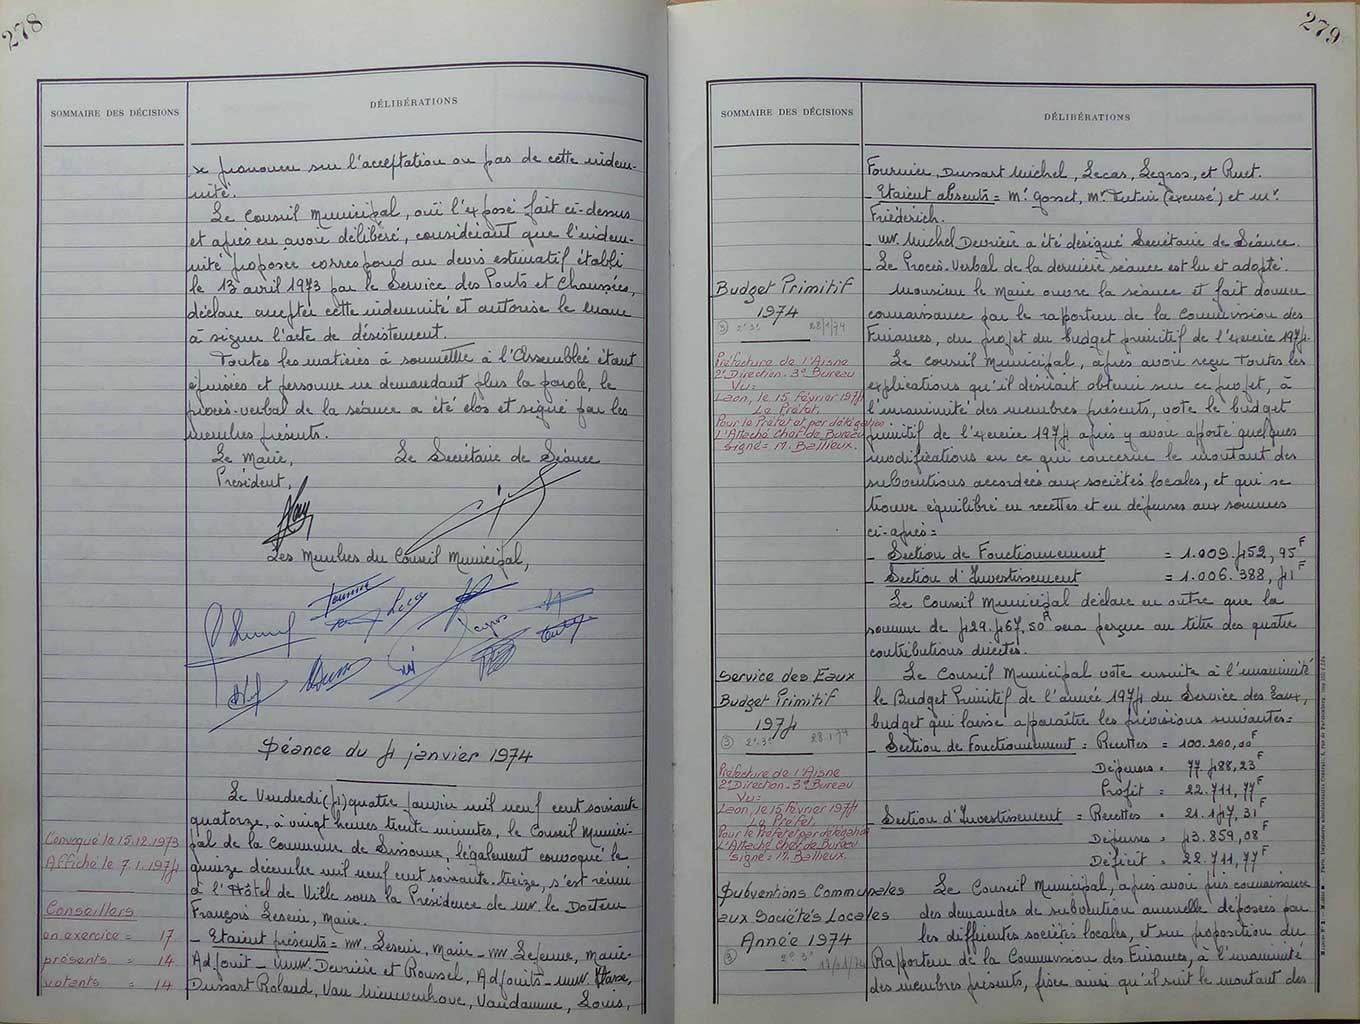 278
SOMMAIRE DES DÉCISIONS
DÉLIBÉRATIONS
se prononcer sur l'acceptation ou pas de cette indem-
nité.
Le Conseil Municipal, ouï l'exposé fait ci-dessus
et après en avoir délibéré, considérant que l'indem-
nité proposée correspond au devis estimatif établi
le 13 avril 1973 par le Service des Ponts et Chaussées,
déclare accepter cette indemnité et autorise le maire
à signer l'acte de désistement.
Toutes les matières à soumettre à l'Assemblée étant
épuisées et personne ne demandant plus la parole, le
procès-verbal de la séance a été clos et signé par les
membres présents.
Le Maire, Le Secrétaire de Séance
Président,
Les Membres du Conseil Municipal,
Séance du 4 janvier 1974
Le Vendredi (4) quatre Janvier mil neuf cent soixante
quatorze, à vingt heures trente minutes, le Conseil Munici-
pal de la Commune de Sissonne, légalement convoqué le
quinze décembre mil neuf cent soixante-treize, s'est réuni
à l'Hôtel de Ville sous la Présidence de Mr. le Docteur
François Leseur, Maire.
- Etaient présents = Mr. Leseur, Maire - Mr Lefevre, Maire-
Adjoint - Mmr. Devrière et Roussel, Adjoints - Mmr.
Dussart Roland, Van Nieuwenhove, Vandamme, Louis,
Convoqué le 15.12.1973
Affiché le 7.1.1974
Conseillers
en exercice = 17
présents = 14
votants = 14
279
SOMMAIRE DES DÉCISIONS
DÉLIBÉRATIONS
Fournier, Dussart Michel, Lecas, Legros, et Ruet.
- Etaient absents = Mr. Gosset, Mr. (excusé) et Mr.
Friéderich.
- Mr. Michel Devrière a été désigné Secrétaire de Séance.
- Le Procès-Verbal de la dernière séance est lu et adopté.
Monsieur le Maire ouvre la séance et fait donner
connaissance par le rapporteur de la Commission des
Finances, du projet du budget primitif de l'exercice 1974.
Le Conseil Municipal, après avoir reçu toutes les
explications qu'il désirait obtenir sur ce projet, à
l'unanimité des membres présents, vote le budget
primitif de l'exercice 1974 après y avoir apporté quelques
modifications en ce qui concerne le montant des
subventions accordées aux sociétés locales, et qui se
trouve équilibré en recettes et en dépenses aux sommes
ci-après =
- Section de Fonctionnement = 1.009.452,95 F
- Section d'Investissement = 1.006.388,41 F
Le Conseil Municipal déclare en outre que la
somme de 429.467,50 F sera perçue au titre des quatre
contributions directes.
Le Conseil Municipal vote ensuite à l'unanimité
le Budget Primitif de l'année 1974 du Service des Eaux,
budget qui laisse apparaître les prévisions suivantes =
- Section de Fonctionnement = Recettes = 100.200,00 F
Dépenses = 77.488,23 F
Profit = 22.711,77 F
- Section d'Investissement = Recettes = 21.147,31 F
Dépenses = 43.859,08 F
Déficit = 22.711,77 F
Le Conseil Municipal, après avoir pris connaissance
des demandes de subvention annuelle déposées par
les différentes sociétés locales, et sur proposition du
Rapporteur de la Commission des Finances, à l'unanimité
des membres présents, fixe ainsi qu'il suit le montant des
Budget Primitif
1974
③ 2° 3° 28/1/74
Préfecture de l'Aisne
2° Direction - 3° Bureau
Vu =
Laon, le 15 Février 1974
Le Préfet,
Pour le Préfet et par délégation.
L'Attaché Chef de Bureau
signé = M. Bailleux.
Service des Eaux
Budget Primitif
1974
③ 2° 3° 28.1.74
Préfecture de l'Aisne
2° Direction - 3° Bureau
Vu =
Laon, le 15 Février 1974
Le Préfet,
Pour le Préfet et par délégation
L'Attaché Chef de Bureau
signé = M. Bailleux.
Subventions Communales
aux Sociétés Locales
Année 1974
③ 2° 3°